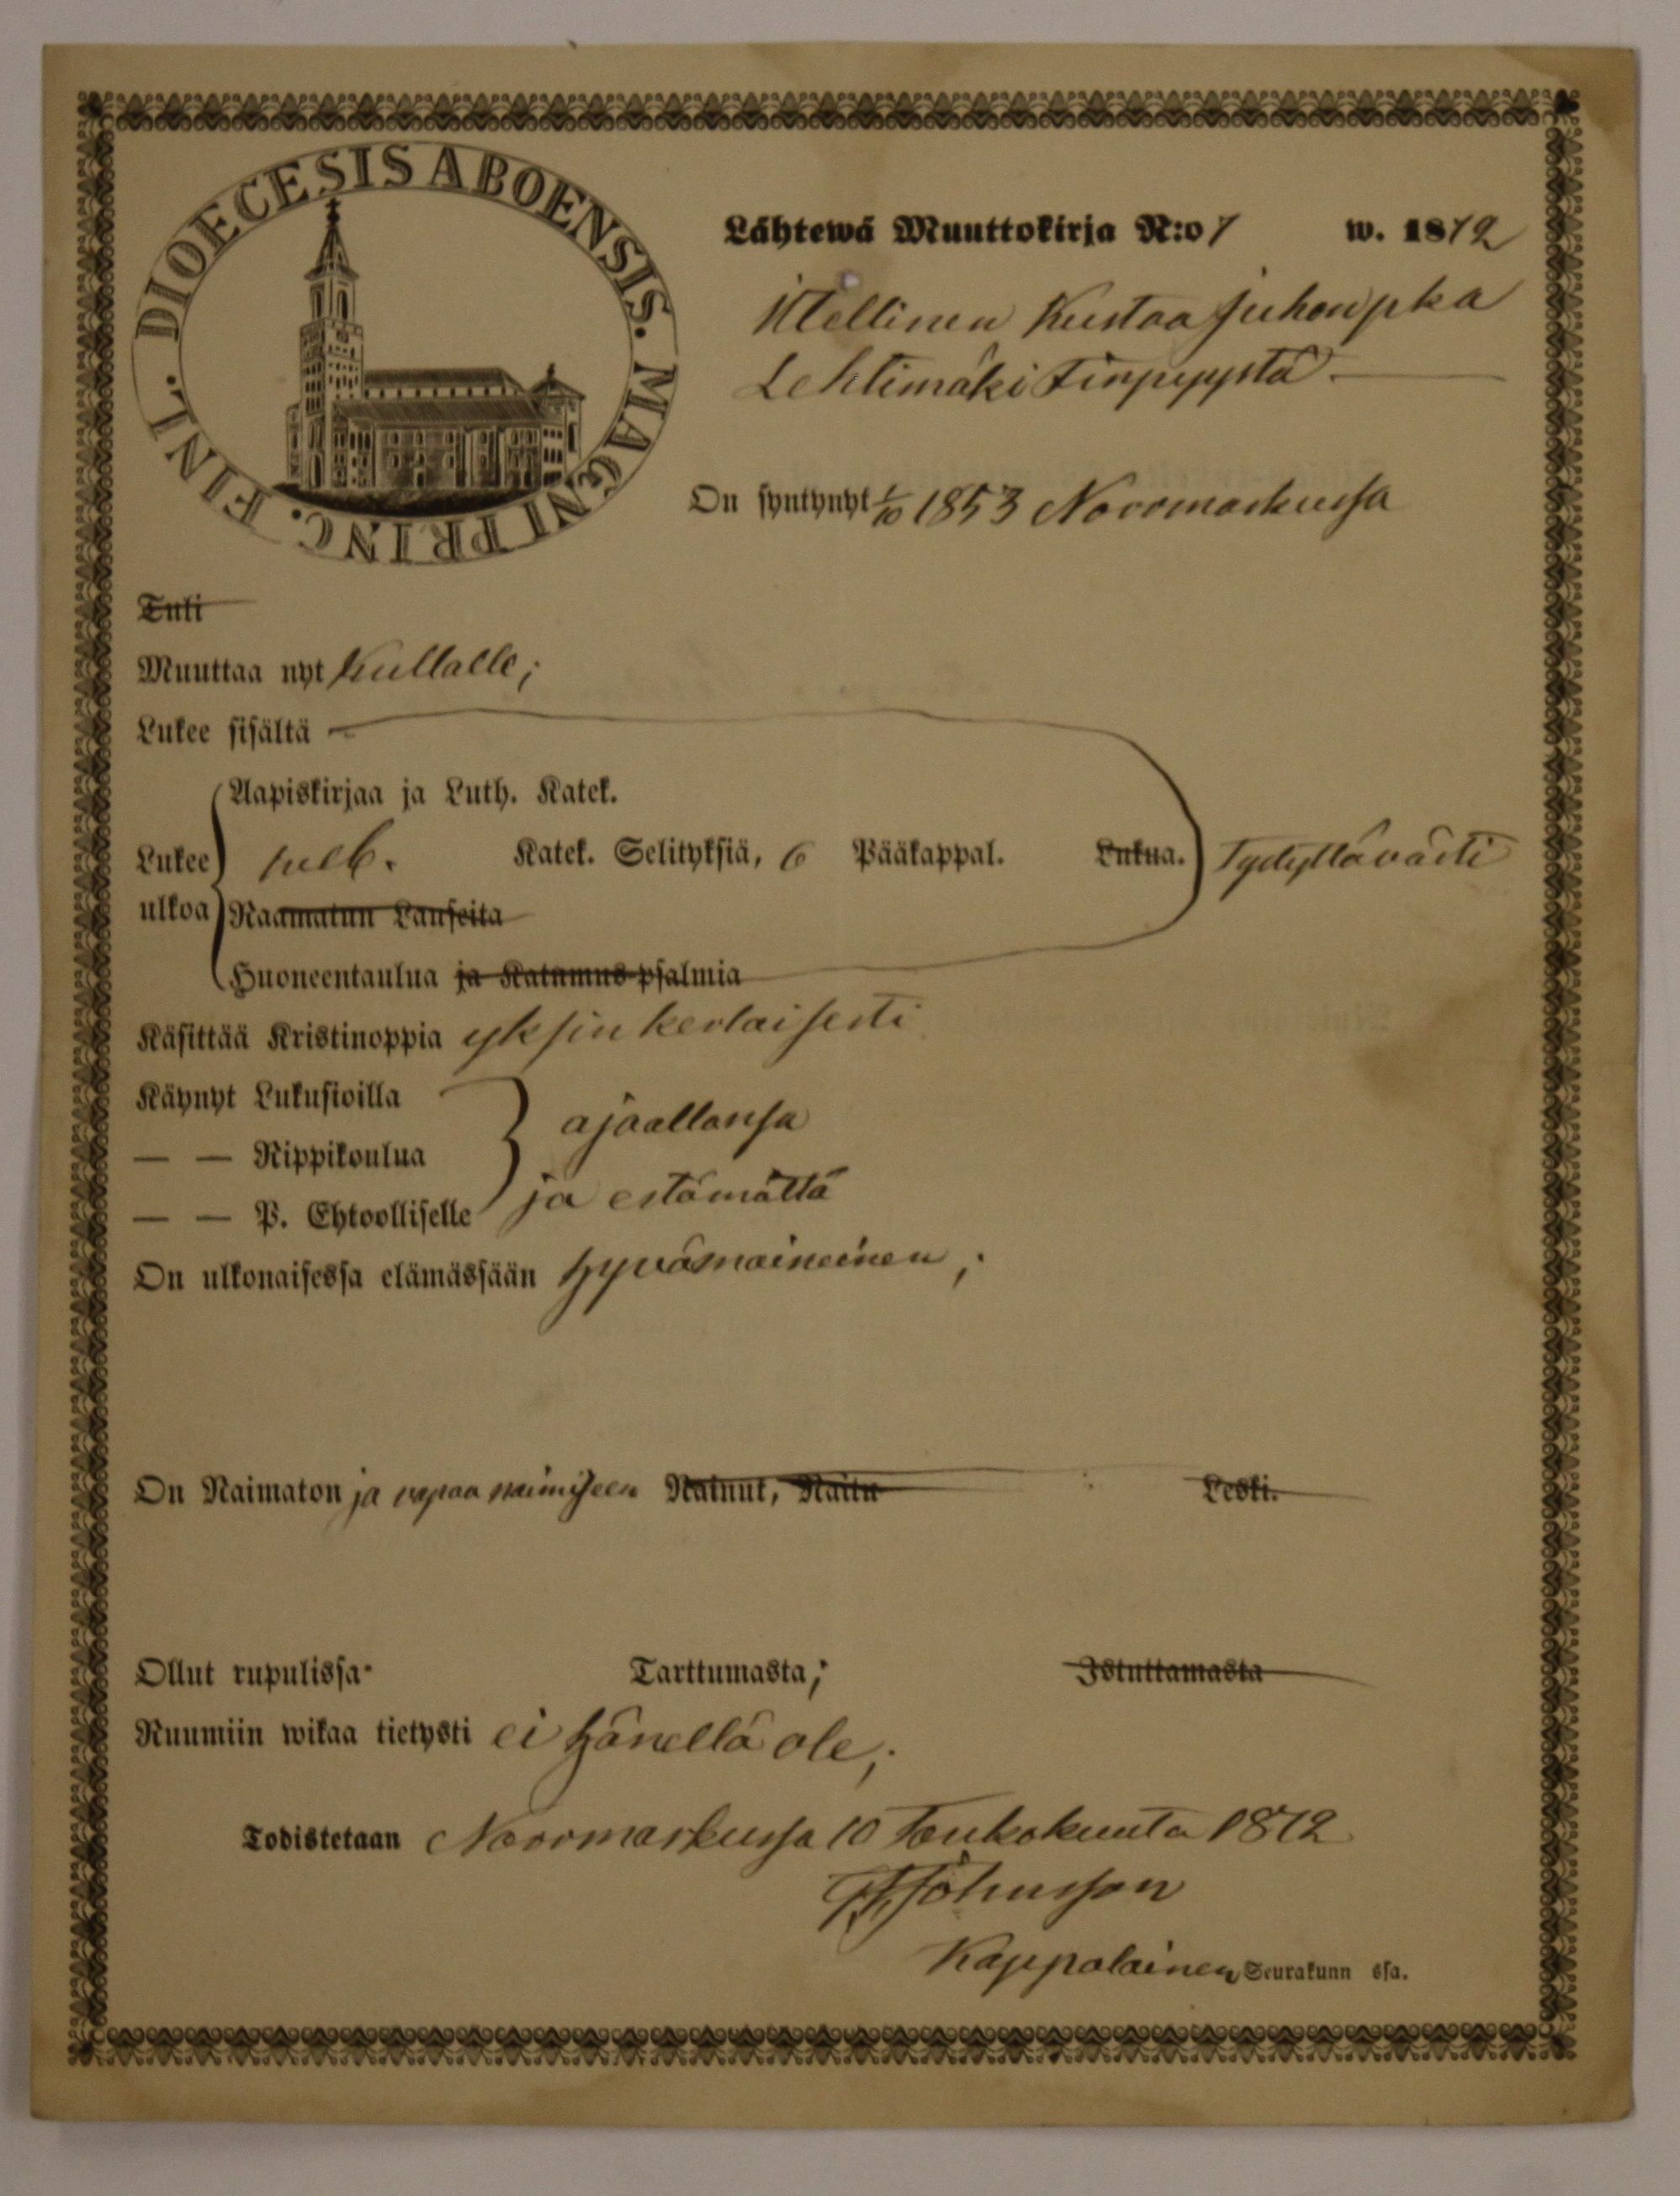 DIOECESIS ABOENSIS. MAGNI PRINC. FINL.
Lähtewä Muuttokirja N:o 7 w. 1872
Itellinen Kustaa Juhonpka
Lehtimäki Finpyystä
On syntynyt 1/10 1853 Noormarkussa
Tuli
Muuttaa nyt Kullalle;
Lukee sisältä
Aapiskirjaa ja Luth. Katek.
Lukee Katek. Selityksiä, 6 Pääkappal. Lukua. Tydyttävästi
ulkoa Raamatun Lauseita
Huoneentaulua ja Katumus-psalmia
Käsittää Kristinoppia yksinkertaisesti
Käynyt Lukusioilla
ajaallansa
— — Rippikoulua
ja estämättä
— — P. Ehtoolliselle
On ulkonaisessa elämässään hyvämaineinen;
On Naimaton ja vapaa naimiseen Nainut, Naitu Leski.
Ollut rupulissa Tarttumasta; Istuttamasta
Ruumiin wikaa tietysti ei hänellä ole;
Todistetaan Noormarkussa 10 Toukokuuta 1872
Johnsson
Kappalainen Seurakunn ssa.